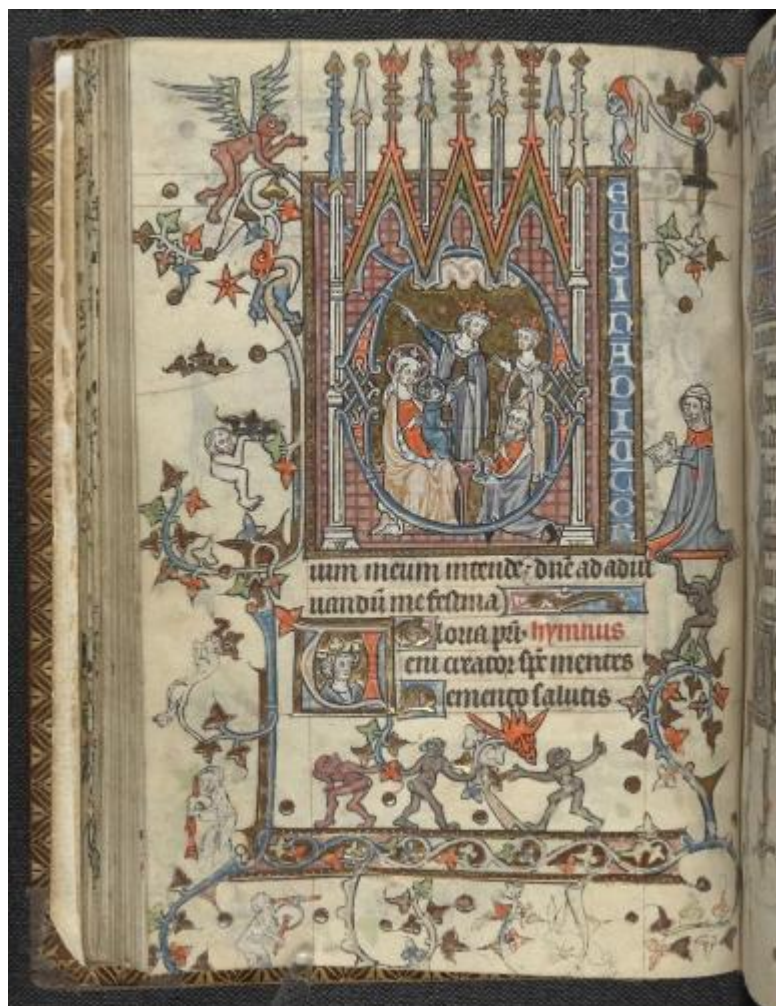 EUSINADIUTOR
ium meum intende · dñe ad adiu
uandū me festina
Gloria pr̄i · hymnus
Ueni creator sp̄c mentes
Memento salutis